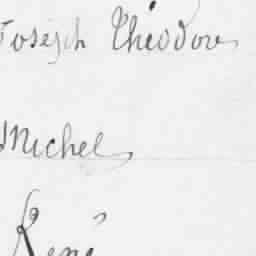 Joseph Théodore
Michel
René